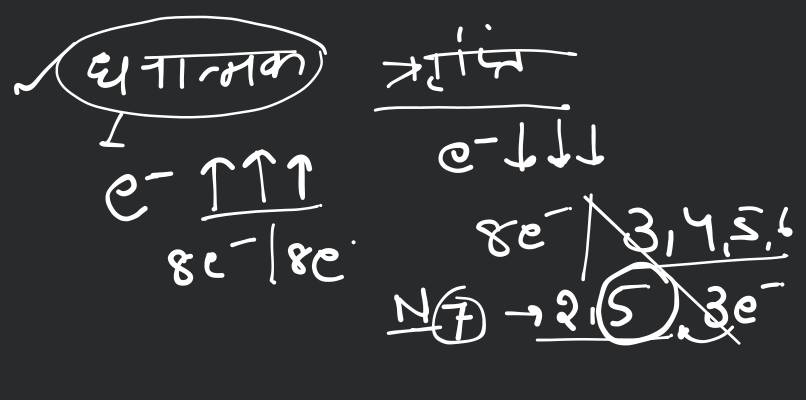 धनात्मक
e⁻ ↑↑↑
8e⁻ | 8e⁻
e⁻ ↓↓↓
8e⁻ | 3,4,5,6
N 7 → 2,5 3e⁻